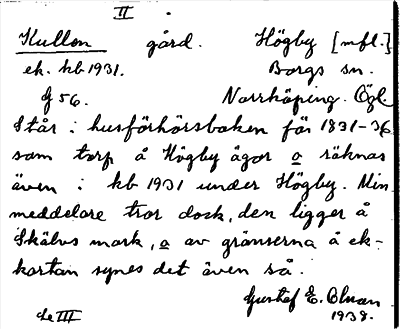 II
Kullen gård. Högby [mfl.]
ek. kb 1931. Borgs sn.
f 56. Norrköping. Ögl.
Står i husförhörsboken för 1831-36
som torp å Högby ägor o räknas
även i kb 1931 under Högby. Min
meddelare tror dock, den ligger å
Skälvs mark, o av gränserna å ek-
kartan synes det även så.
Gustaf E. Bluan
Le III 1938.